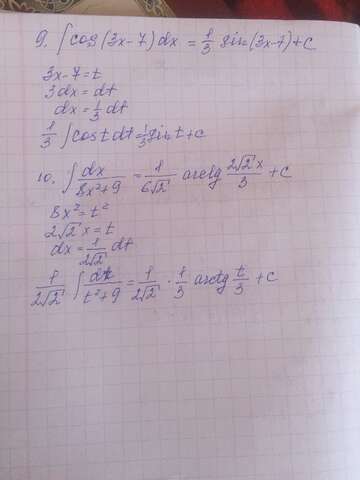 9. ∫ cos(3x-7) dx = 1/3 sin(3x-7)+C
3x-7=t
3dx = dt
dx = 1/3 dt
1/3 ∫ cos t dt = 1/3 sin t + c
10. ∫ dx/(8x²+9) = 1/(6√2) arctg (2√2 x)/3 + C
8x² = t²
2√2 x = t
dx = 1/(2√2) dt
1/(2√2) ∫ dt/(t²+9) = 1/(2√2) · 1/3 arctg t/3 + C